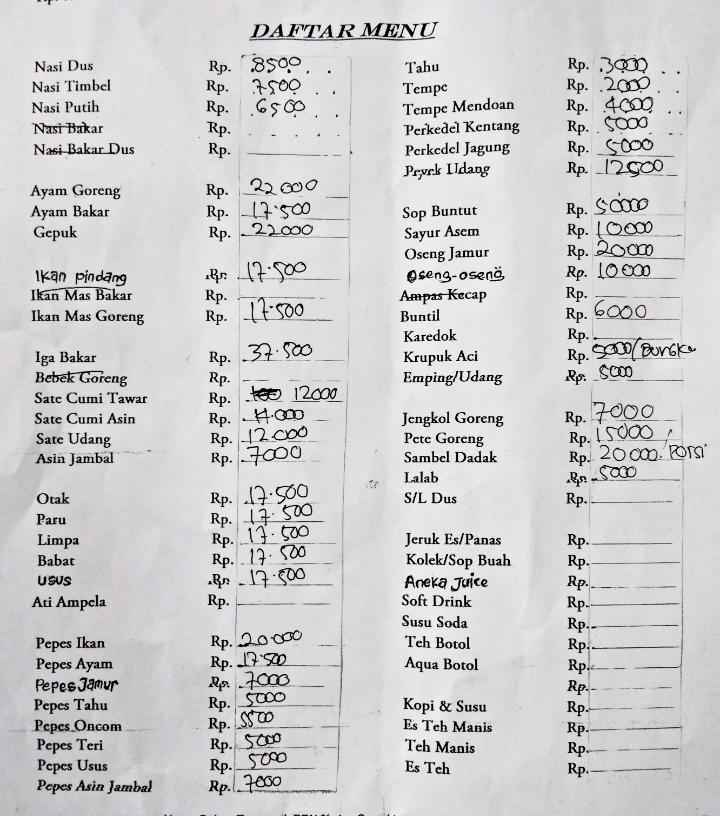 DAFTAR MENU
Nasi Dus Rp. 8500
Nasi Timbel Rp. 7500
Nasi Putih Rp. 6500
Nasi Bakar Rp.
Nasi Bakar Dus Rp.
Ayam Goreng Rp. 22000
Ayam Bakar Rp. 17.500
Gepuk Rp. 22000
Ikan pindang Rp. 17.500
Ikan Mas Bakar Rp.
Ikan Mas Goreng Rp. 17.500
Iga Bakar Rp. 37.500
Bebek Goreng Rp.
Sate Cumi Tawar Rp. 12000
Sate Cumi Asin Rp. 11.000
Sate Udang Rp. 12.000
Asin Jambal Rp. 7000
Otak Rp. 17.500
Paru Rp. 17.500
Limpa Rp. 17.500
Babat Rp. 17.500
usus Rp. 17.500
Ati Ampela Rp.
Pepes Ikan Rp. 20.000
Pepes Ayam Rp. 17.500
Pepes Jamur Rp. 7000
Pepes Tahu Rp. 5000
Pepes Oncom Rp. 5500
Pepes Teri Rp. 5000
Pepes Usus Rp. 5000
Pepes Asin Jambal Rp. 7000
Tahu Rp. 3000
Tempe Rp. 2000
Tempe Mendoan Rp. 4000
Perkedel Kentang Rp. 5000
Perkedel Jagung Rp. 5000
Udang Rp. 12500
Sop Buntut Rp. 50000
Sayur Asem Rp. 10000
Oseng Jamur Rp. 20000
Oseng-oseng Rp. 10000
Ampas Kecap Rp.
Buntil Rp. 6000
Karedok Rp.
Krupuk Aci Rp. 5000/
Emping/Udang Rp. 5000
Jengkol Goreng Rp. 7000
Pete Goreng Rp. 15000 /
Sambel Dadak Rp. 20000. Porsi
Lalab Rp. 5000
S/L Dus Rp.
Jeruk Es/Panas Rp.
Kolek/Sop Buah Rp.
Aneka Juice Rp.
Soft Drink Rp.
Susu Soda Rp.
Teh Botol Rp.
Aqua Botol Rp.
Rp.
Kopi & Susu Rp.
Es Teh Manis Rp.
Teh Manis Rp.
Es Teh Rp.